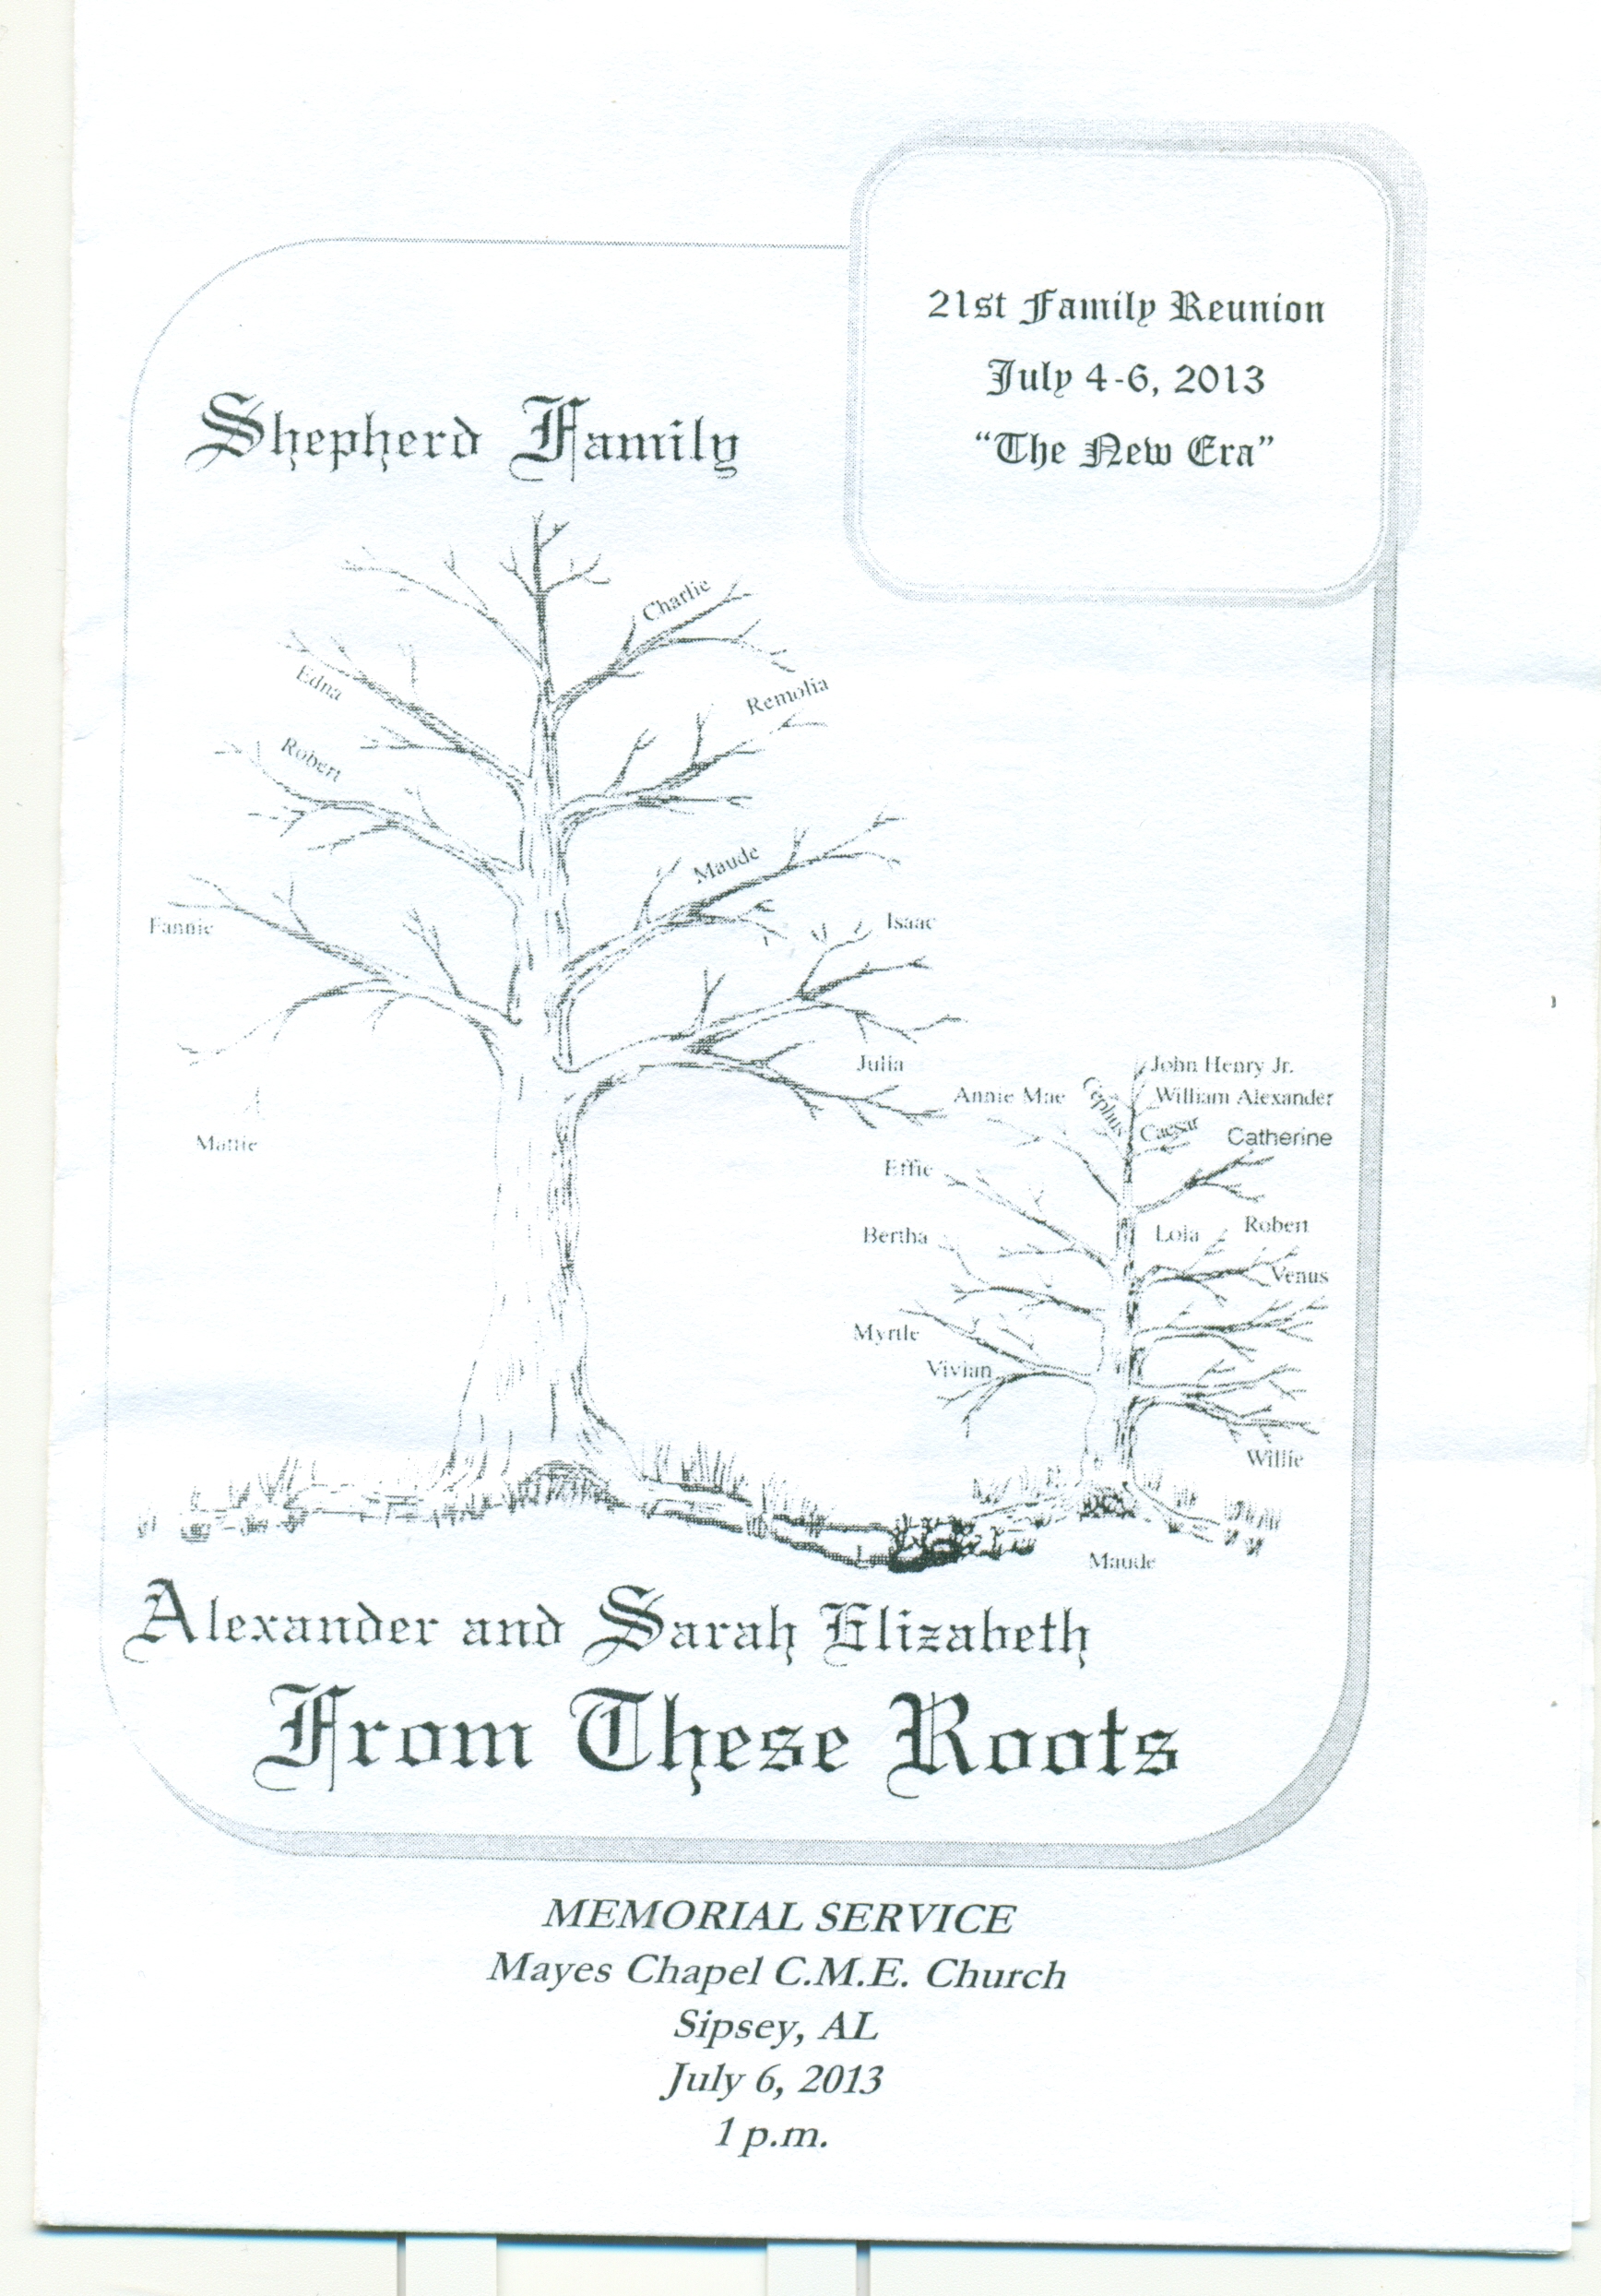 21st Family Reunion
July 4-6, 2013
“The New Era”
Shepherd Family
Charlie
Edna
Remolia
Robert
Maude
Fannie
Isaac
Julia
Mattie
John Henry Jr.
Annie Mae
Cephus
William Alexander
Caesar
Catherine
Effie
Bertha
Lola
Robert
Venus
Myrtle
Vivian
Willie
Maude
Alexander and Sarah Elizabeth
From These Roots
MEMORIAL SERVICE
Mayes Chapel C.M.E. Church
Sipsey, AL
July 6, 2013
1 p.m.